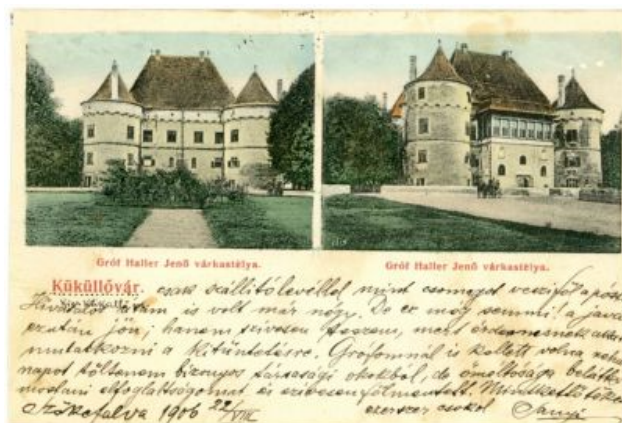 Gróf Haller Jenő várkastélya.
Gróf Haller Jenő várkastélya.
Küküllővár.
csak szállitólevéllel mint csomagot veszi föl a pósta
Hivatalos utam is volt már négy. De ez még semmi: a java
ezután jön; hanem szivesen teszem, mert érdemesnek
mutatkozni a kitüntetésre. Grófomnál is kellett volna néhá
napot töltenem bizonyos társasági okokból, de őméltósága belátta
mostani elfoglaltságomat és szivesen fölmentett. Mindkettőtöket
Szőkefalva 1906 22/VIII ezerszer csókol Sanyi